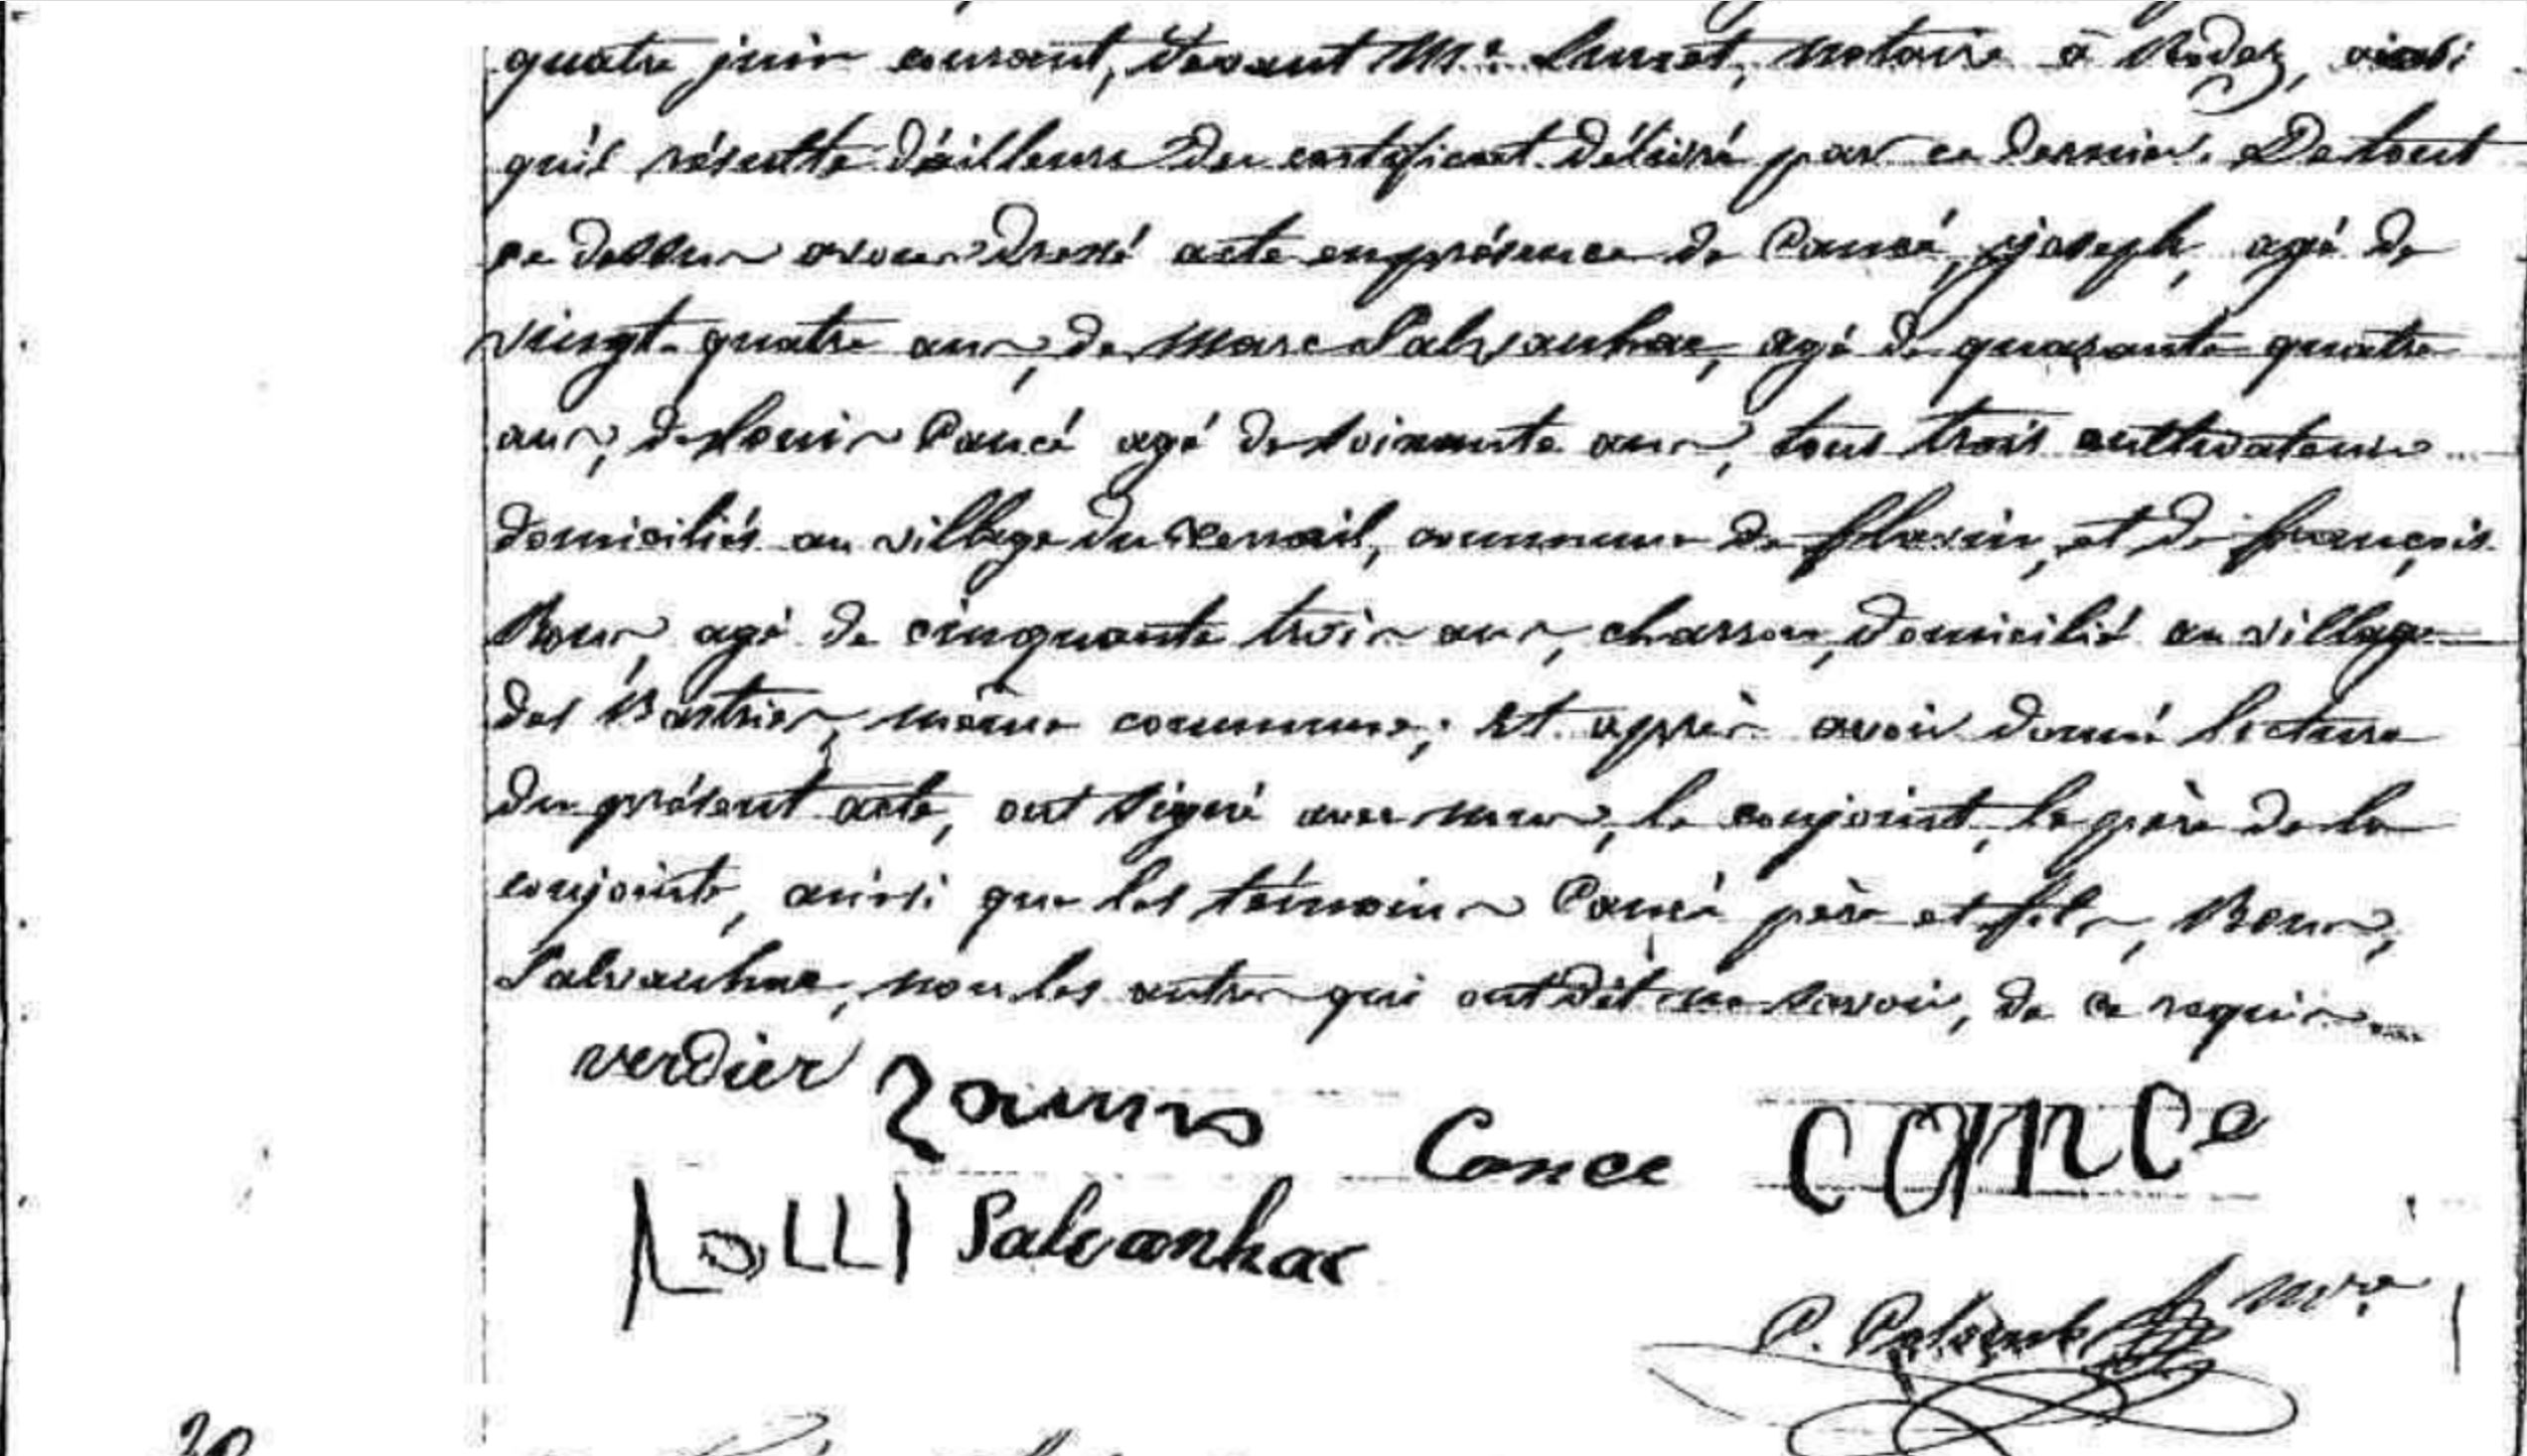 quatre juin courant, devant Me. Lunet, notaire à Rodez, ainsi
qu'il résulte d'ailleurs du certificat délivré par ce dernier. De tout
ce dessus avons dressé acte en présence de Cancé, joseph, agé de
vingt-quatre ans, de Marc Salvanhac, agé de quarante quatre
ans, de Louis Cancé agé de soixante ans, tous trois cultivateurs
domiciliés au village du, commune de flavin, et de françois
Bous, agé de cinquante trois ans, charron, domicilié au village
des, même commune; Et après avoir donné lecture
du présent acte, ont signé avec nous, le conjoint, le père de la
conjointe, ainsi que les témoins Cancé père et fils, Bous,
Salvanhac, non les autres qui ont dit ne savoir, de ce requis.
verdier
Cance cance
Salvanhac
P.